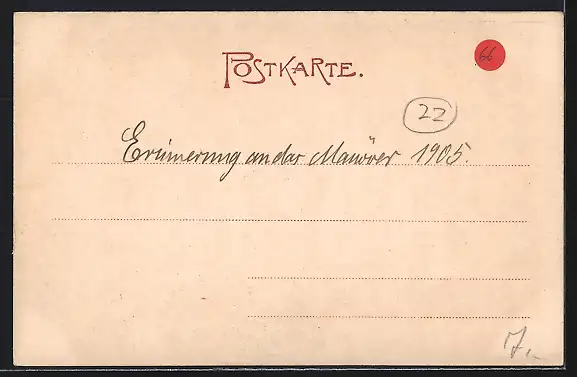 POSTKARTE.
66
22
Erinnerung an das Manöver 1905.
17,-